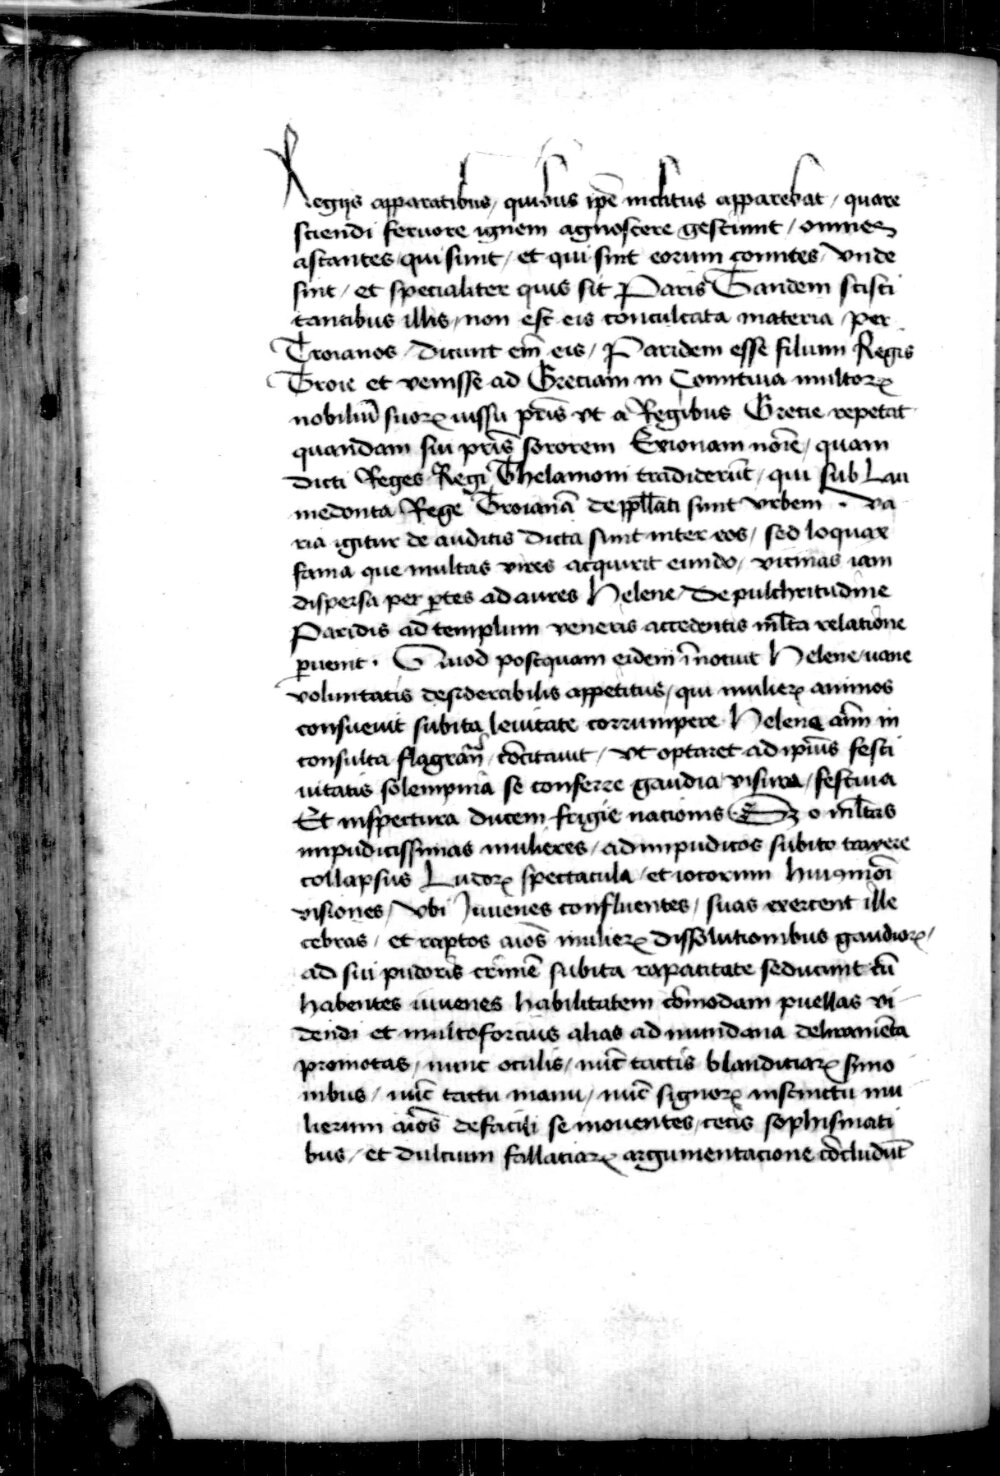 Regijs apparatibus / quibus ip̄e inclitus apparebat / quare
sciendi fervore ignem agnoscere gestiunt / omnes
astantes qui sunt / et qui sint eorum comites / vnde
sint / et specialiter quis sit Paris Tandem scisci
tantibus illis / non est eis conculcata materia / per
Troianos / dicunt em̄ eis / Paridem esse filium Regis
Troie et venisse ad Greciam in Comitiua multoꝝ
nobiliū suoꝝ iussu pr̄is vt a Regibus Grecie repetat
quandam sui pr̄is sororem Exionam noīe / quam
dicti Reges Regi Thelamoni tradiderūt / qui sub Lau
medonta Rege Troianā depp̄llati sunt vrbem . va
ria igitur de auditis dicta sunt inter eos / sed loquax
fama que multas vires acquirit eundo / vicinas iam
dispersa per ꝑtes ad aures Helene / de pulchritudine
Paridis ad templum veneris accedentis ml̄ta relatione
ꝑuenit . Quod postquam eidem īnotuit Helene / uane
voluntatis desiderabilis appetitus / qui mulieꝝ animos
consueuit subita leuitate corrumpere Helene aīm in
consulta flagran̄ / cōcitauit / vt optaret ad ipīus festi
uitatis solempnia se conferre gaudia visura / festiua
Et inspectura ducem frigie nationis Sꝫ o ml̄tas
impudicissimas mulieres / ad impudicos subito traxere
collapsus Ludoꝝ spectacula / et iocorum huiꝰmōi
visiones / vbi Iuuenes confluentes / suas exercent ille
cebras / et raptos aīos mulieꝝ dissolutionibus gaudioꝝ /
ad sui pudoris crimē subita rapacitate seducunt cū
habentes iuuenes habilitatem cōmodam puellas vi
dendi et multofortius alias ad mundana deliramēta
promotas / nunc oculis / nūc tactis blandiciaꝝ s̄mo
nibus / nūc tactu manu / nūc signoꝝ instinctu mu
lierum aīos defacili se mouentes / cecis sophismati
bus / et dulcium fallaciaꝝ argumentacione cōcludūt